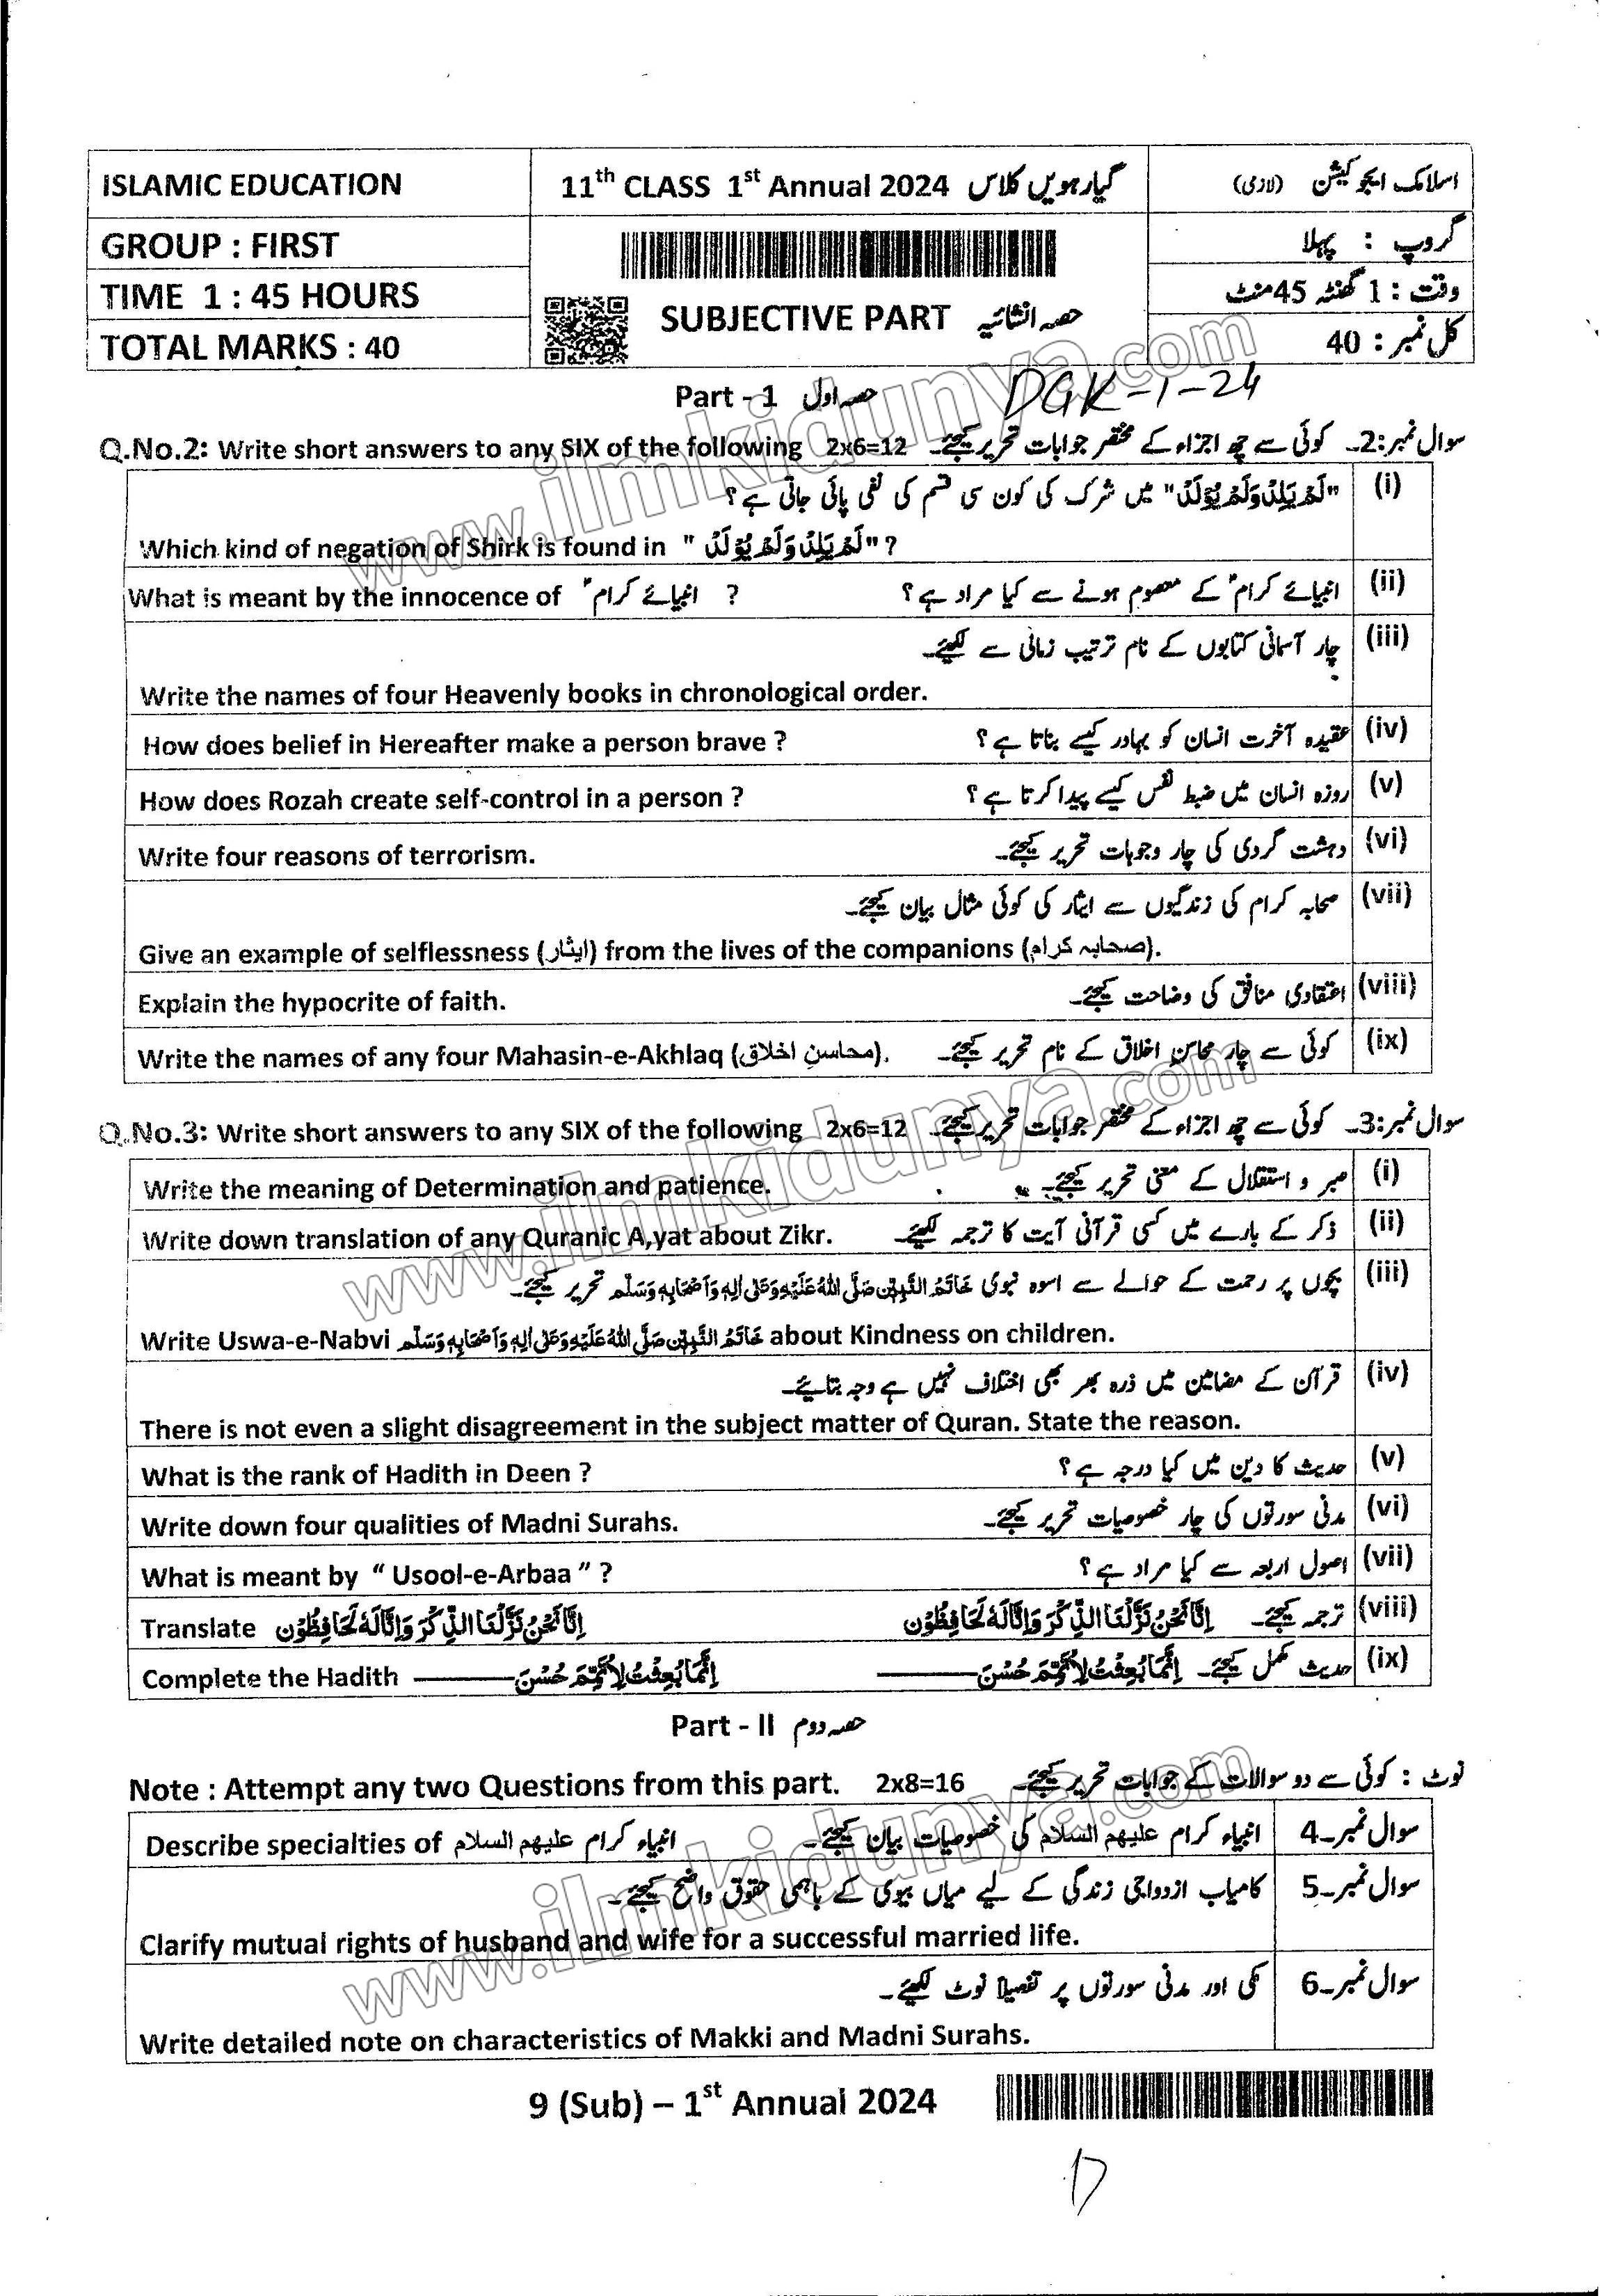 ISLAMIC EDUCATION
11th CLASS 1st Annual 2024 گیارہویں کلاس
اسلامک ایجوکیشن (لازمی)
GROUP : FIRST
گروپ : پہلا
TIME 1 : 45 HOURS
وقت : 1 گھنٹہ 45 منٹ
SUBJECTIVE PART حصہ انشائیہ
TOTAL MARKS : 40
کل نمبر : 40
Part - 1 حصہ اول
DGK-1-24
Q.No.2: Write short answers to any SIX of the following 2x6=12 سوال نمبر:2۔ کوئی سے چھ اجزاء کے مختصر جوابات تحریر کیجئے۔
(i) "لَمْ يَلِدْ وَلَمْ يُوْلَدْ" میں شرک کی کون سی قسم کی نفی پائی جاتی ہے؟
Which kind of negation of Shirk is found in "لَمْ يَلِدْ وَلَمْ يُوْلَدْ" ?
What is meant by the innocence of انبیائے کرامؑ ? (ii) انبیائے کرامؑ کے معصوم ہونے سے کیا مراد ہے؟
(iii) چار آسمانی کتابوں کے نام ترتیب زمانی سے لکھئے۔
Write the names of four Heavenly books in chronological order.
How does belief in Hereafter make a person brave ? (iv) عقیدہ آخرت انسان کو بہادر کیسے بناتا ہے؟
How does Rozah create self-control in a person ? (v) روزہ انسان میں ضبط نفس کیسے پیدا کرتا ہے؟
Write four reasons of terrorism. (vi) دہشت گردی کی چار وجوہات تحریر کیجئے۔
(vii) صحابہ کرام کی زندگیوں سے ایثار کی کوئی مثال بیان کیجئے۔
Give an example of selflessness (ایثار) from the lives of the companions (صحابہ کرام).
Explain the hypocrite of faith. (viii) اعتقادی منافق کی وضاحت کیجئے۔
Write the names of any four Mahasin-e-Akhlaq (محاسنِ اخلاق). (ix) کوئی سے چار محاسن اخلاق کے نام تحریر کیجئے۔
Q.No.3: Write short answers to any SIX of the following 2x6=12 سوال نمبر:3۔ کوئی سے چھ اجزاء کے مختصر جوابات تحریر کیجئے۔
Write the meaning of Determination and patience. (i) صبر و استقلال کے معنی تحریر کیجئے۔
Write down translation of any Quranic A,yat about Zikr. (ii) ذکر کے بارے میں کسی قرآنی آیت کا ترجمہ لکھئے۔
(iii) بچوں پر رحمت کے حوالے سے اسوہ نبوی خَاتَمُ النَّبِيّٖنَ صَلَّى اللهُ عَلَيْهِ وَعَلٰى اٰلِهٖ وَاَصْحَابِهٖ وَسَلَّم تحریر کیجئے۔
Write Uswa-e-Nabvi خَاتَمُ النَّبِيّٖنَ صَلَّى اللهُ عَلَيْهِ وَعَلٰى اٰلِهٖ وَاَصْحَابِهٖ وَسَلَّم about Kindness on children.
(iv) قرآن کے مضامین میں ذرہ بھر بھی اختلاف نہیں ہے وجہ بتائیے۔
There is not even a slight disagreement in the subject matter of Quran. State the reason.
What is the rank of Hadith in Deen ? (v) حدیث کا دین میں کیا درجہ ہے؟
Write down four qualities of Madni Surahs. (vi) مدنی سورتوں کی چار خصوصیات تحریر کیجئے۔
What is meant by “ Usool-e-Arbaa ” ? (vii) اصول اربعہ سے کیا مراد ہے؟
Translate اِنَّا نَحْنُ نَزَّلْنَا الذِّكْرَ وَاِنَّا لَهٗ لَحَافِظُوْنَ (viii) ترجمہ کیجئے۔ اِنَّا نَحْنُ نَزَّلْنَا الذِّكْرَ وَاِنَّا لَهٗ لَحَافِظُوْنَ
Complete the Hadith اِنَّمَا بُعِثْتُ لِاُتَمِّمَ حُسْنَ ——— (ix) حدیث مکمل کیجئے۔ اِنَّمَا بُعِثْتُ لِاُتَمِّمَ حُسْنَ ———
Part - II حصہ دوم
Note : Attempt any two Questions from this part. 2x8=16 نوٹ : کوئی سے دو سوالات کے جوابات تحریر کیجئے۔
Describe specialties of انبیاء کرام علیہم السلام سوال نمبر۔4 انبیاء کرام علیہم السلام کی خصوصیات بیان کیجئے۔
سوال نمبر۔5 کامیاب ازدواجی زندگی کے لیے میاں بیوی کے باہمی حقوق واضح کیجئے۔
Clarify mutual rights of husband and wife for a successful married life.
سوال نمبر۔6 مکی اور مدنی سورتوں پر تفصیلا نوٹ لکھئے۔
Write detailed note on characteristics of Makki and Madni Surahs.
9 (Sub) – 1st Annual 2024
www.ilmkidunya.com
www.ilmkidunya.com
www.ilmkidunya.com